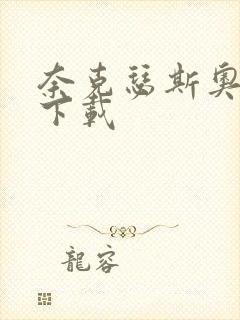 奈克瑟斯奥
下載
龍容